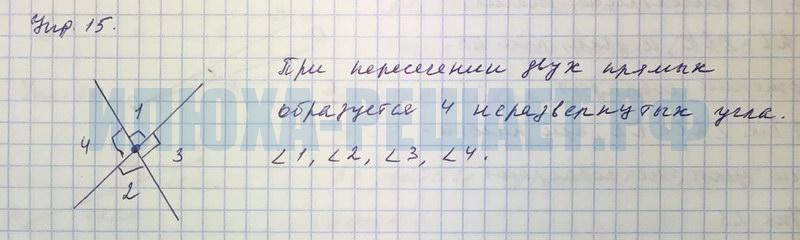 Упр. 15.
При пересечении двух прямых
образуется 4 неразвернутых угла.
∠1, ∠2, ∠3, ∠4.
1
4
3
2
ИЛЮХА-РЕШАЕТ.РФ